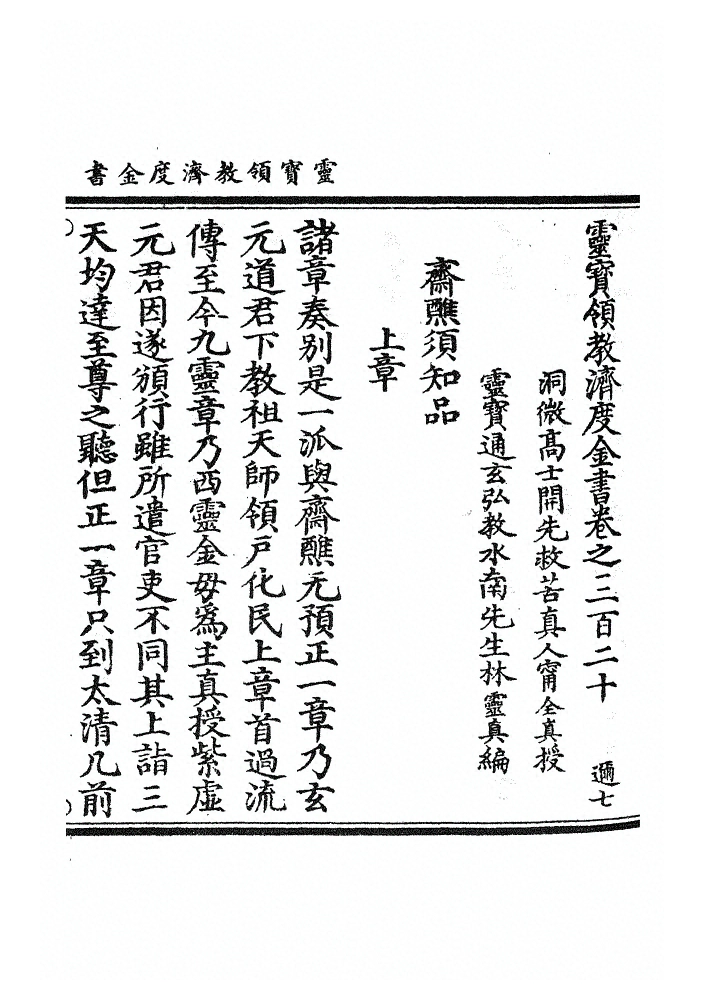 靈寶領教濟度金書
靈寶領教濟度金書卷之三百二十 邇七
洞微高士開先救苦真人甯全真授
靈寶通玄弘教水南先生林靈真編
齋醮須知品
上章
諸章奏別是一派與齋醮无預正一章乃玄
元道君下教祖天師領戶化民上章首過流
傳至今九靈章乃西靈金毋爲主真授紫虛
元君因遂頒行雖所遣官吏不同其上詣三
天均達至尊之聽但正一章只到太清几前